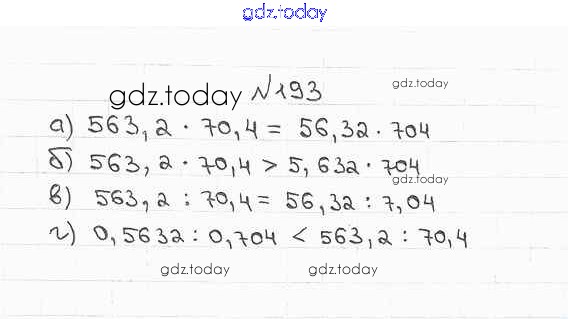 gdz.today
gdz.today №193 gdz.today
а) 563,2 · 70,4 = 56,32 · 704
б) 563,2 · 70,4 > 5,632 · 704
gdz.today
в) 563,2 : 70,4 = 56,32 : 7,04
г) 0,5632 : 0,704 < 563,2 : 70,4
gdz.today gdz.today